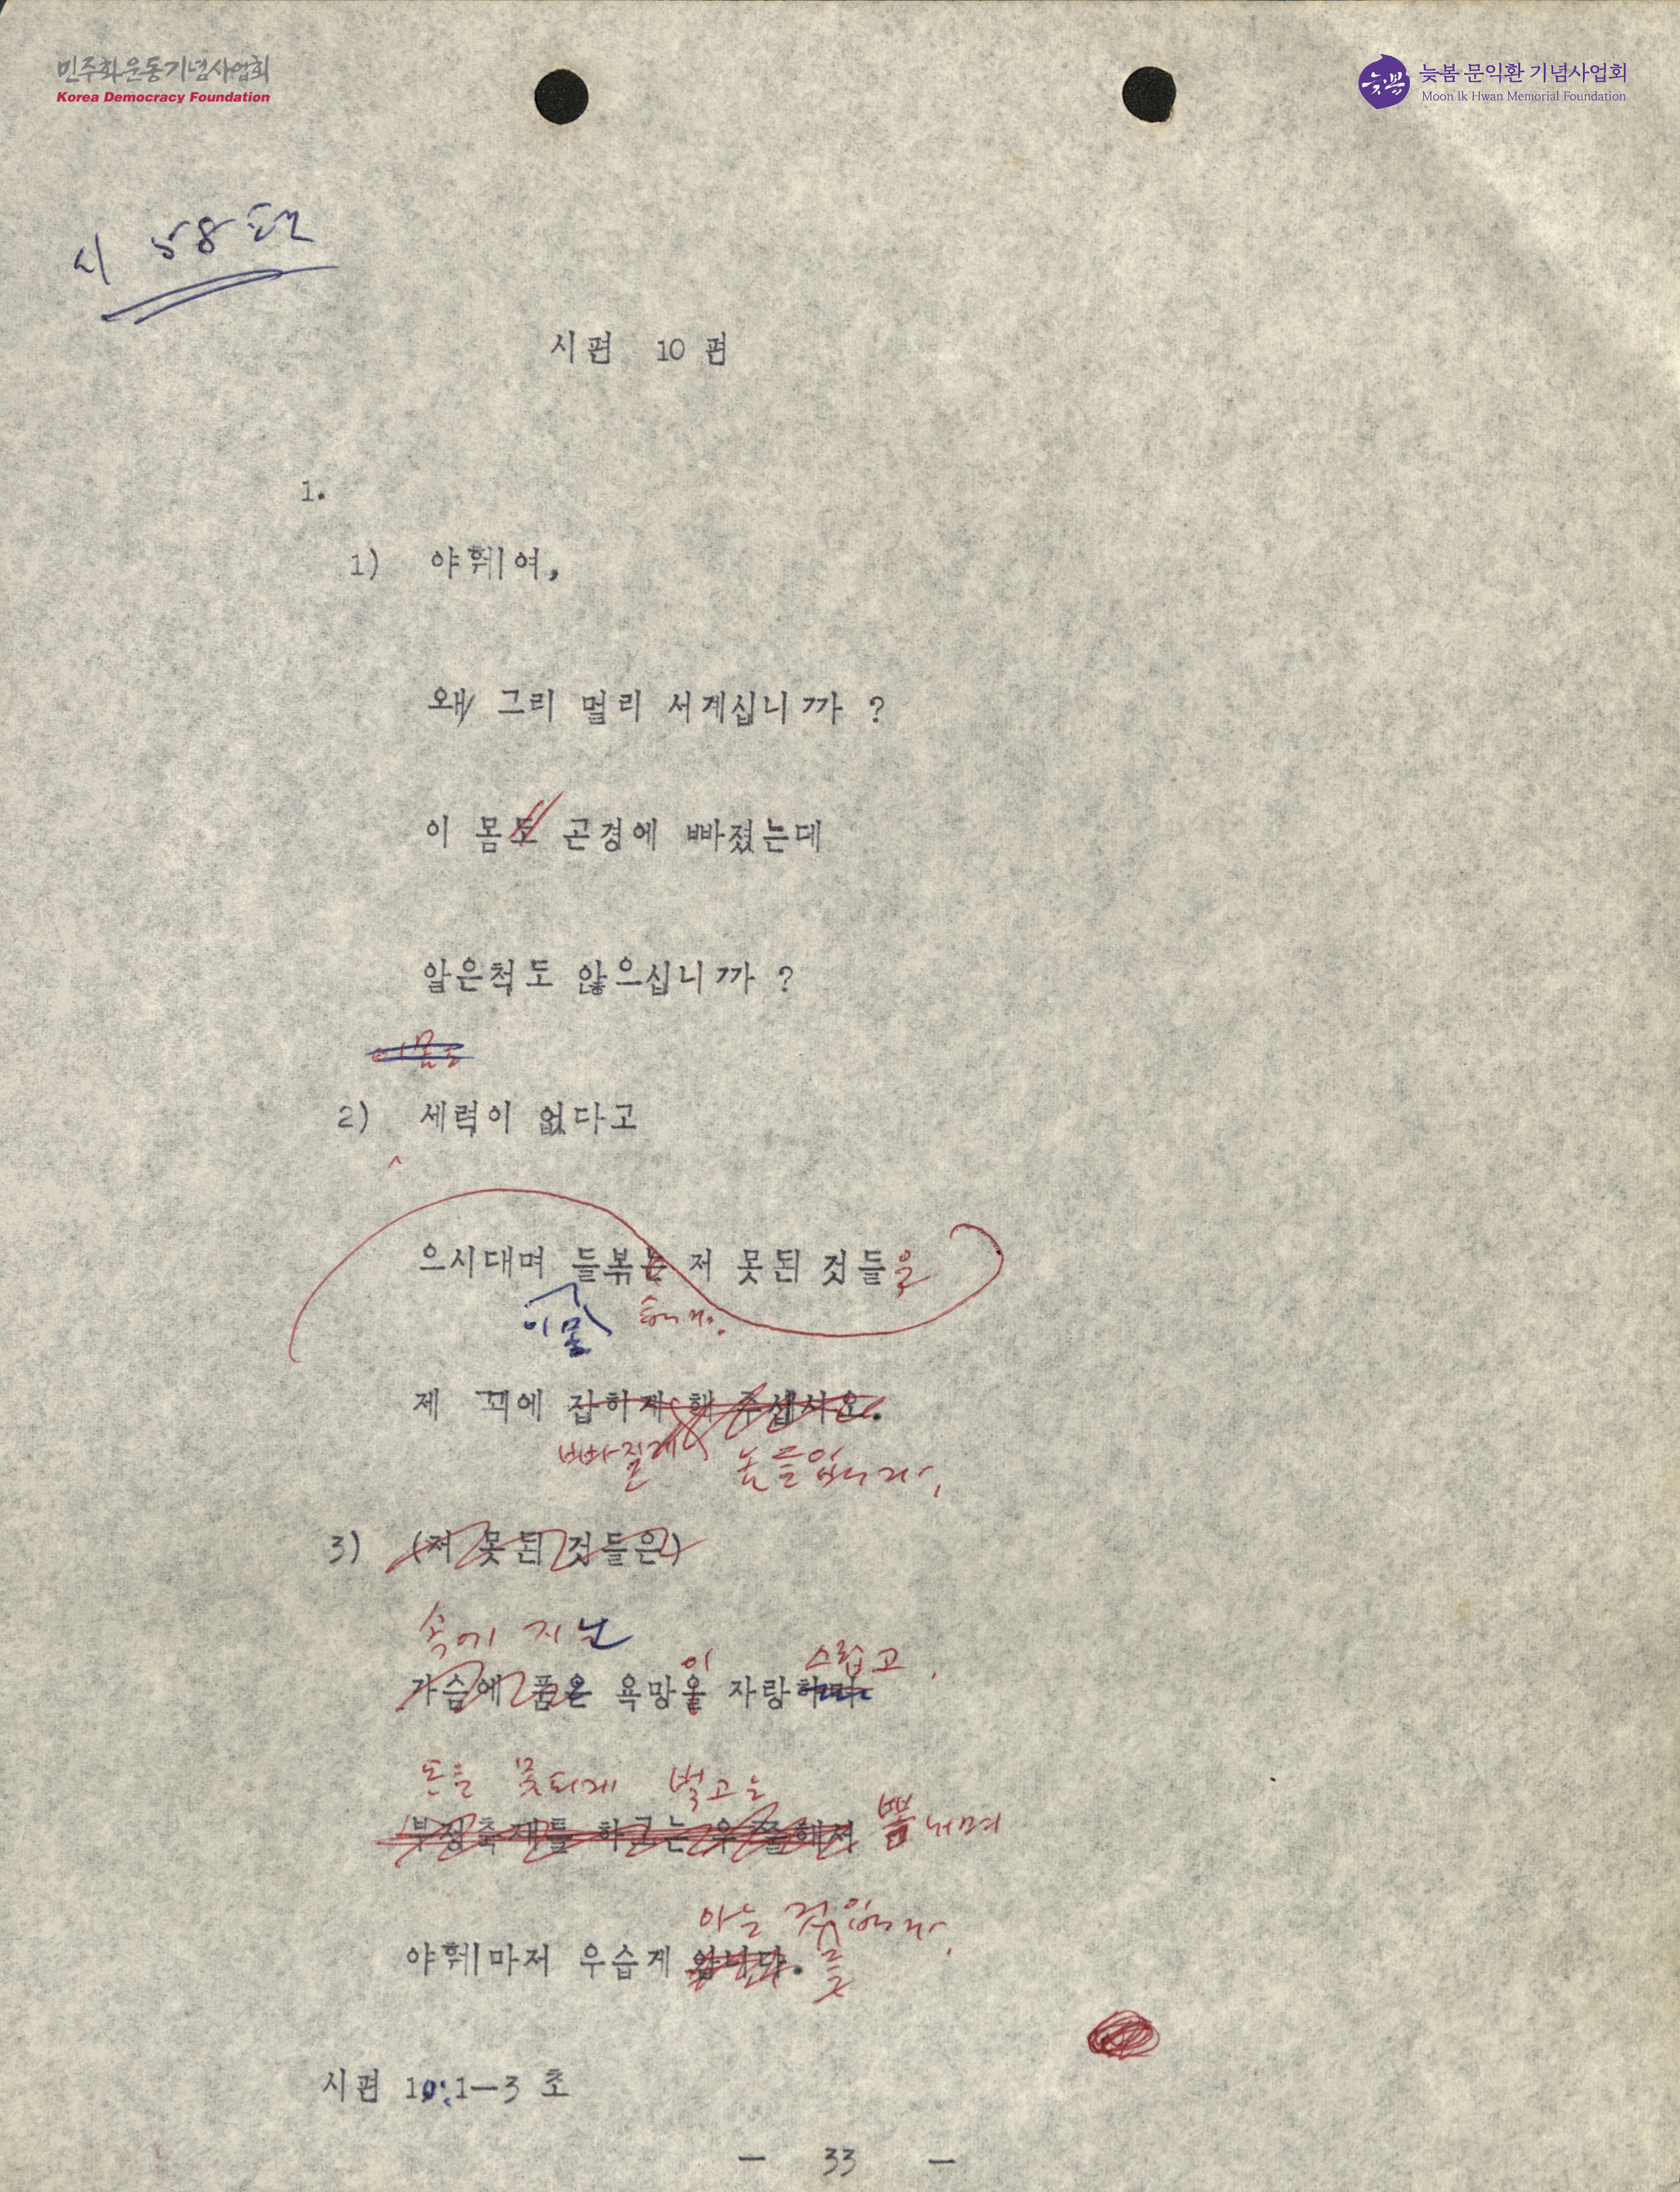 민주화운동기념사업회
Korea Democracy Foundation
늦봄
늦봄 문익환 기념사업회
Moon Ik Hwan Memorial Foundation
시 58편
시편 10 편
1.
1) 야훼여,
왜 그리 멀리 서계십니까 ?
이 몸도 곤경에 빠졌는데
알은척도 않으십니까 ?
이몸도
2) 세력이 없다고
으시대며 들볶는 저 못된 것들을
이몸
제 꾀에 잡히게 해 주십시오.
빠질 놈들입니다.
3) (저 못된 것들은)
속에 지닌
이 스럽고,
가슴에 품은 욕망을 자랑하며
돈을 못되게 벌고는
부정축재를 하고는 우쭐해져 뽐내며
아는 것입니다.
야훼마저 우습게 압니다. 들
시편 10:1—3 초
— 33 —